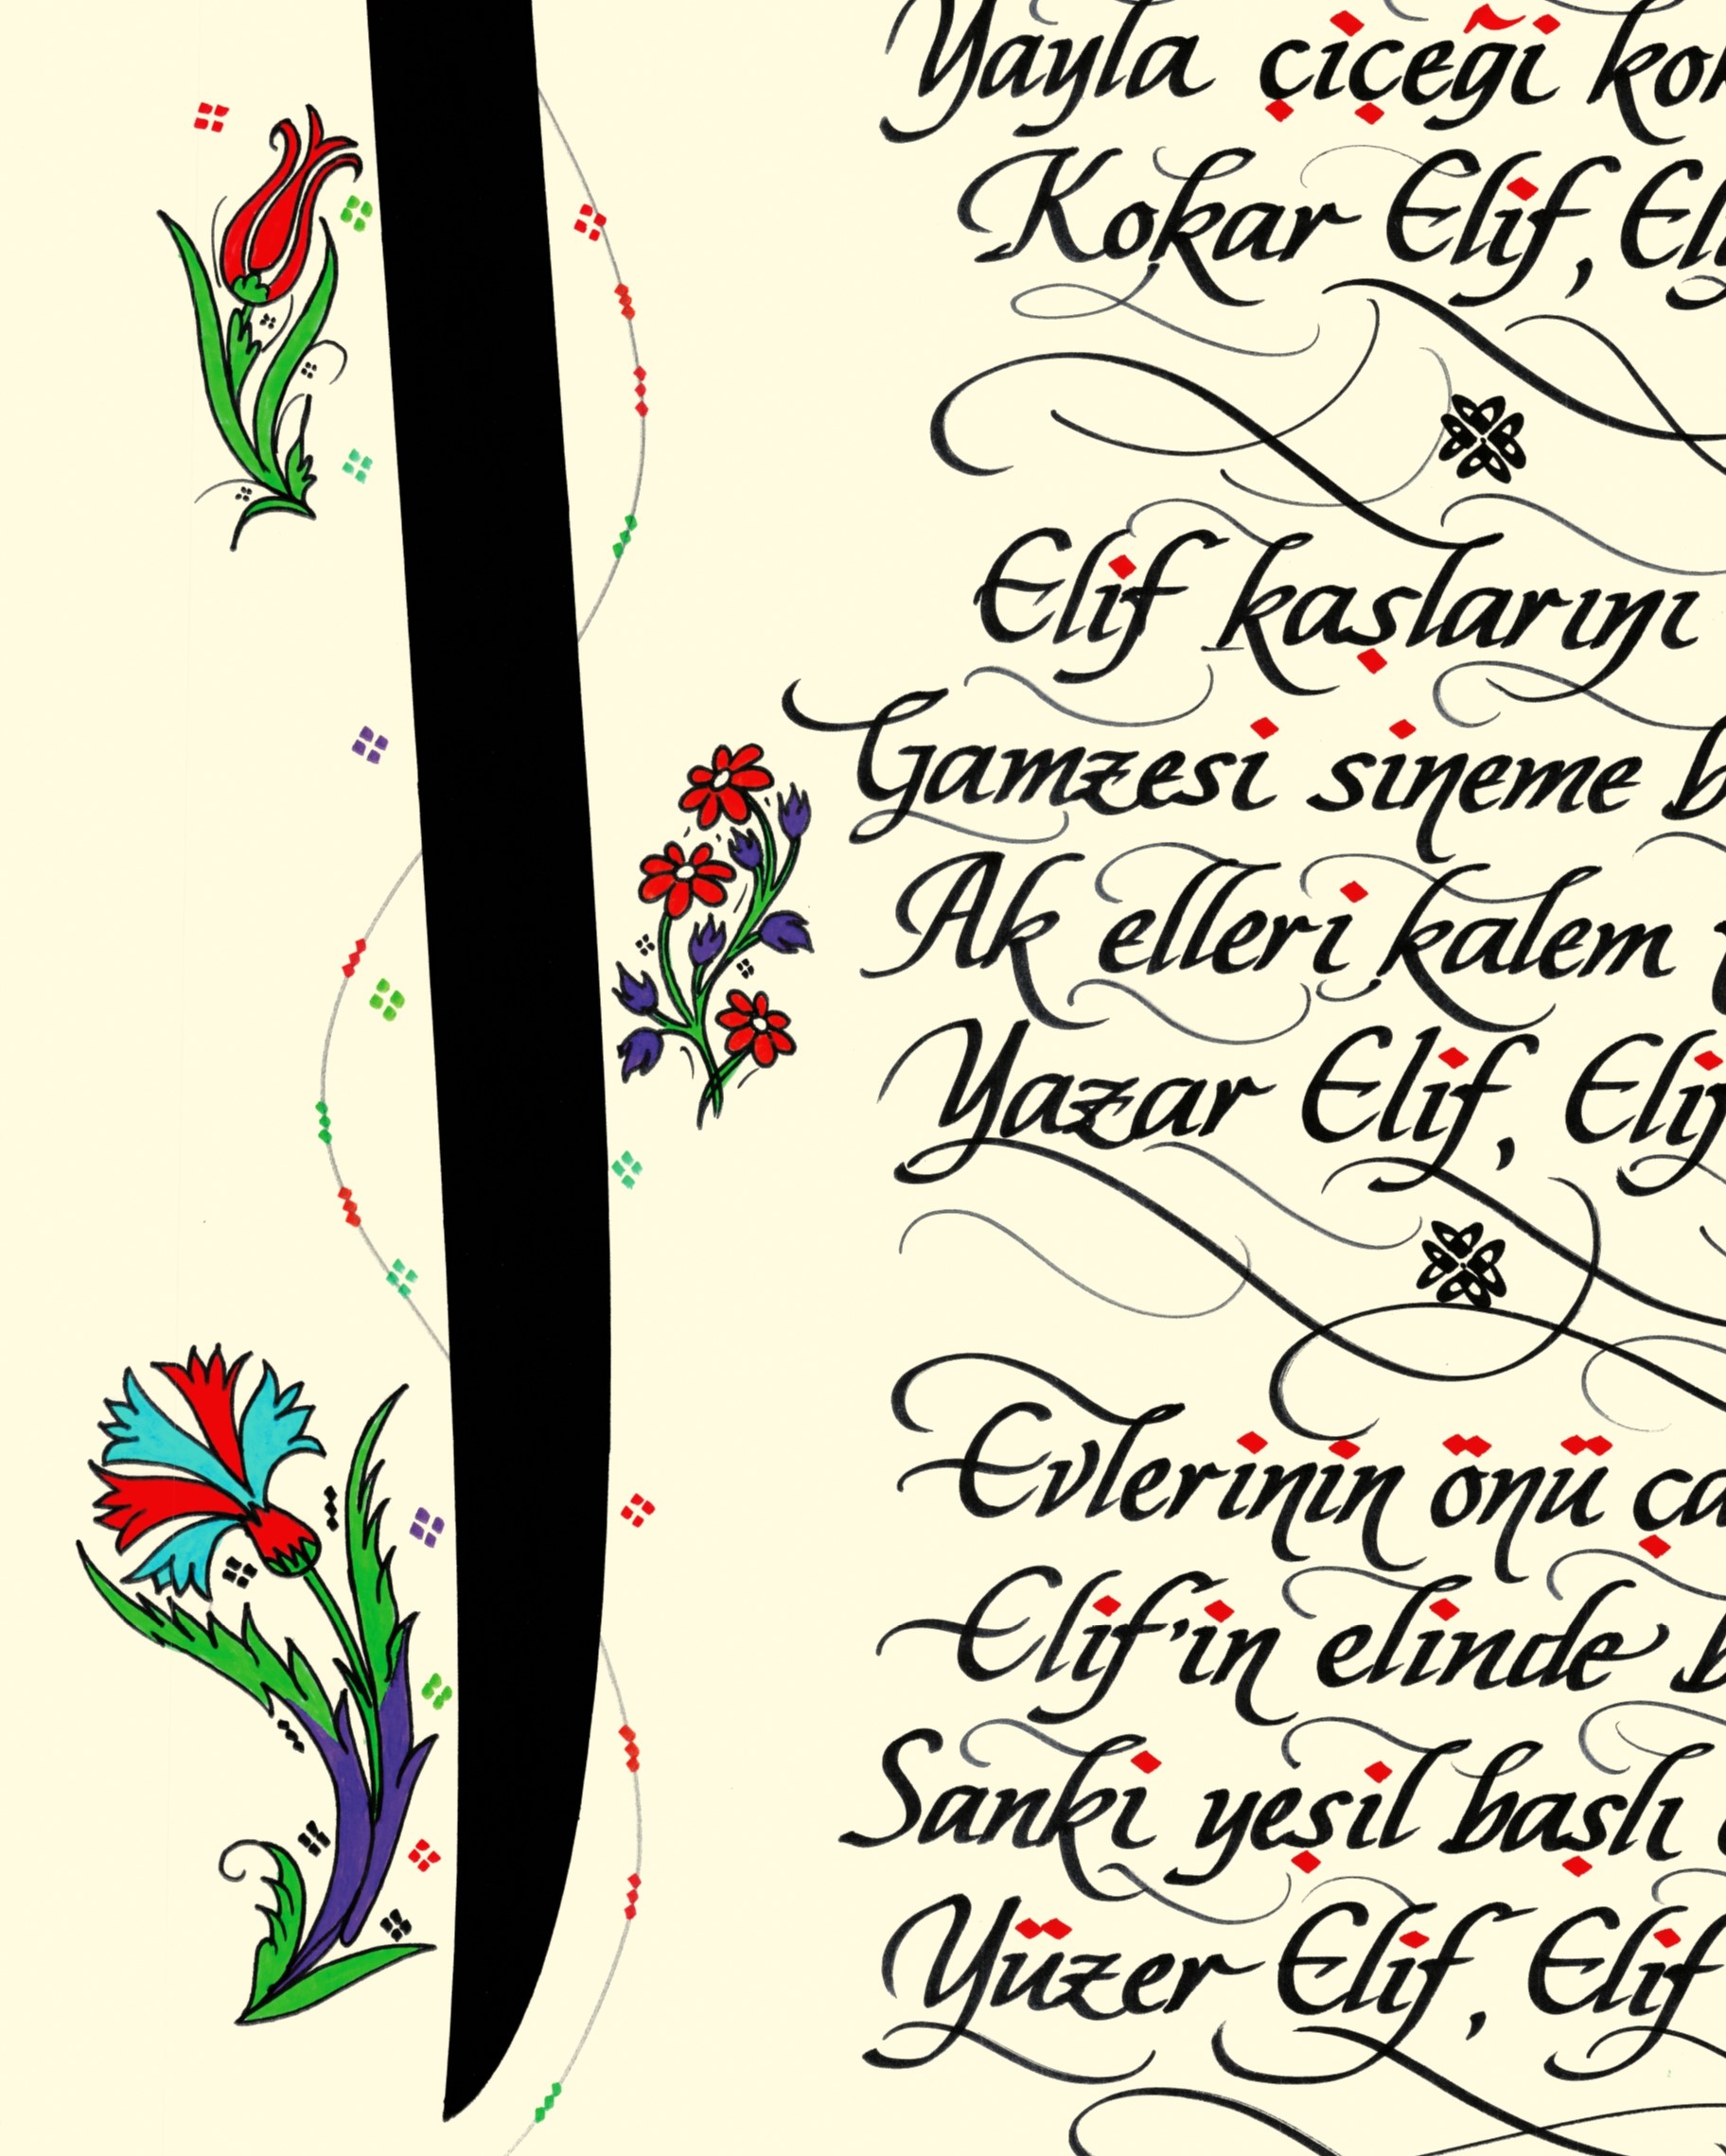 Yayla çiçeği
Kokar Elif,
Elif kaşlarını
Gamzesi sineme
Ak elleri kalem
Yazar Elif, Elif
Evlerinin önü
Elif'in elinde
Sanki yeşil başlı
Yüzer Elif, Elif